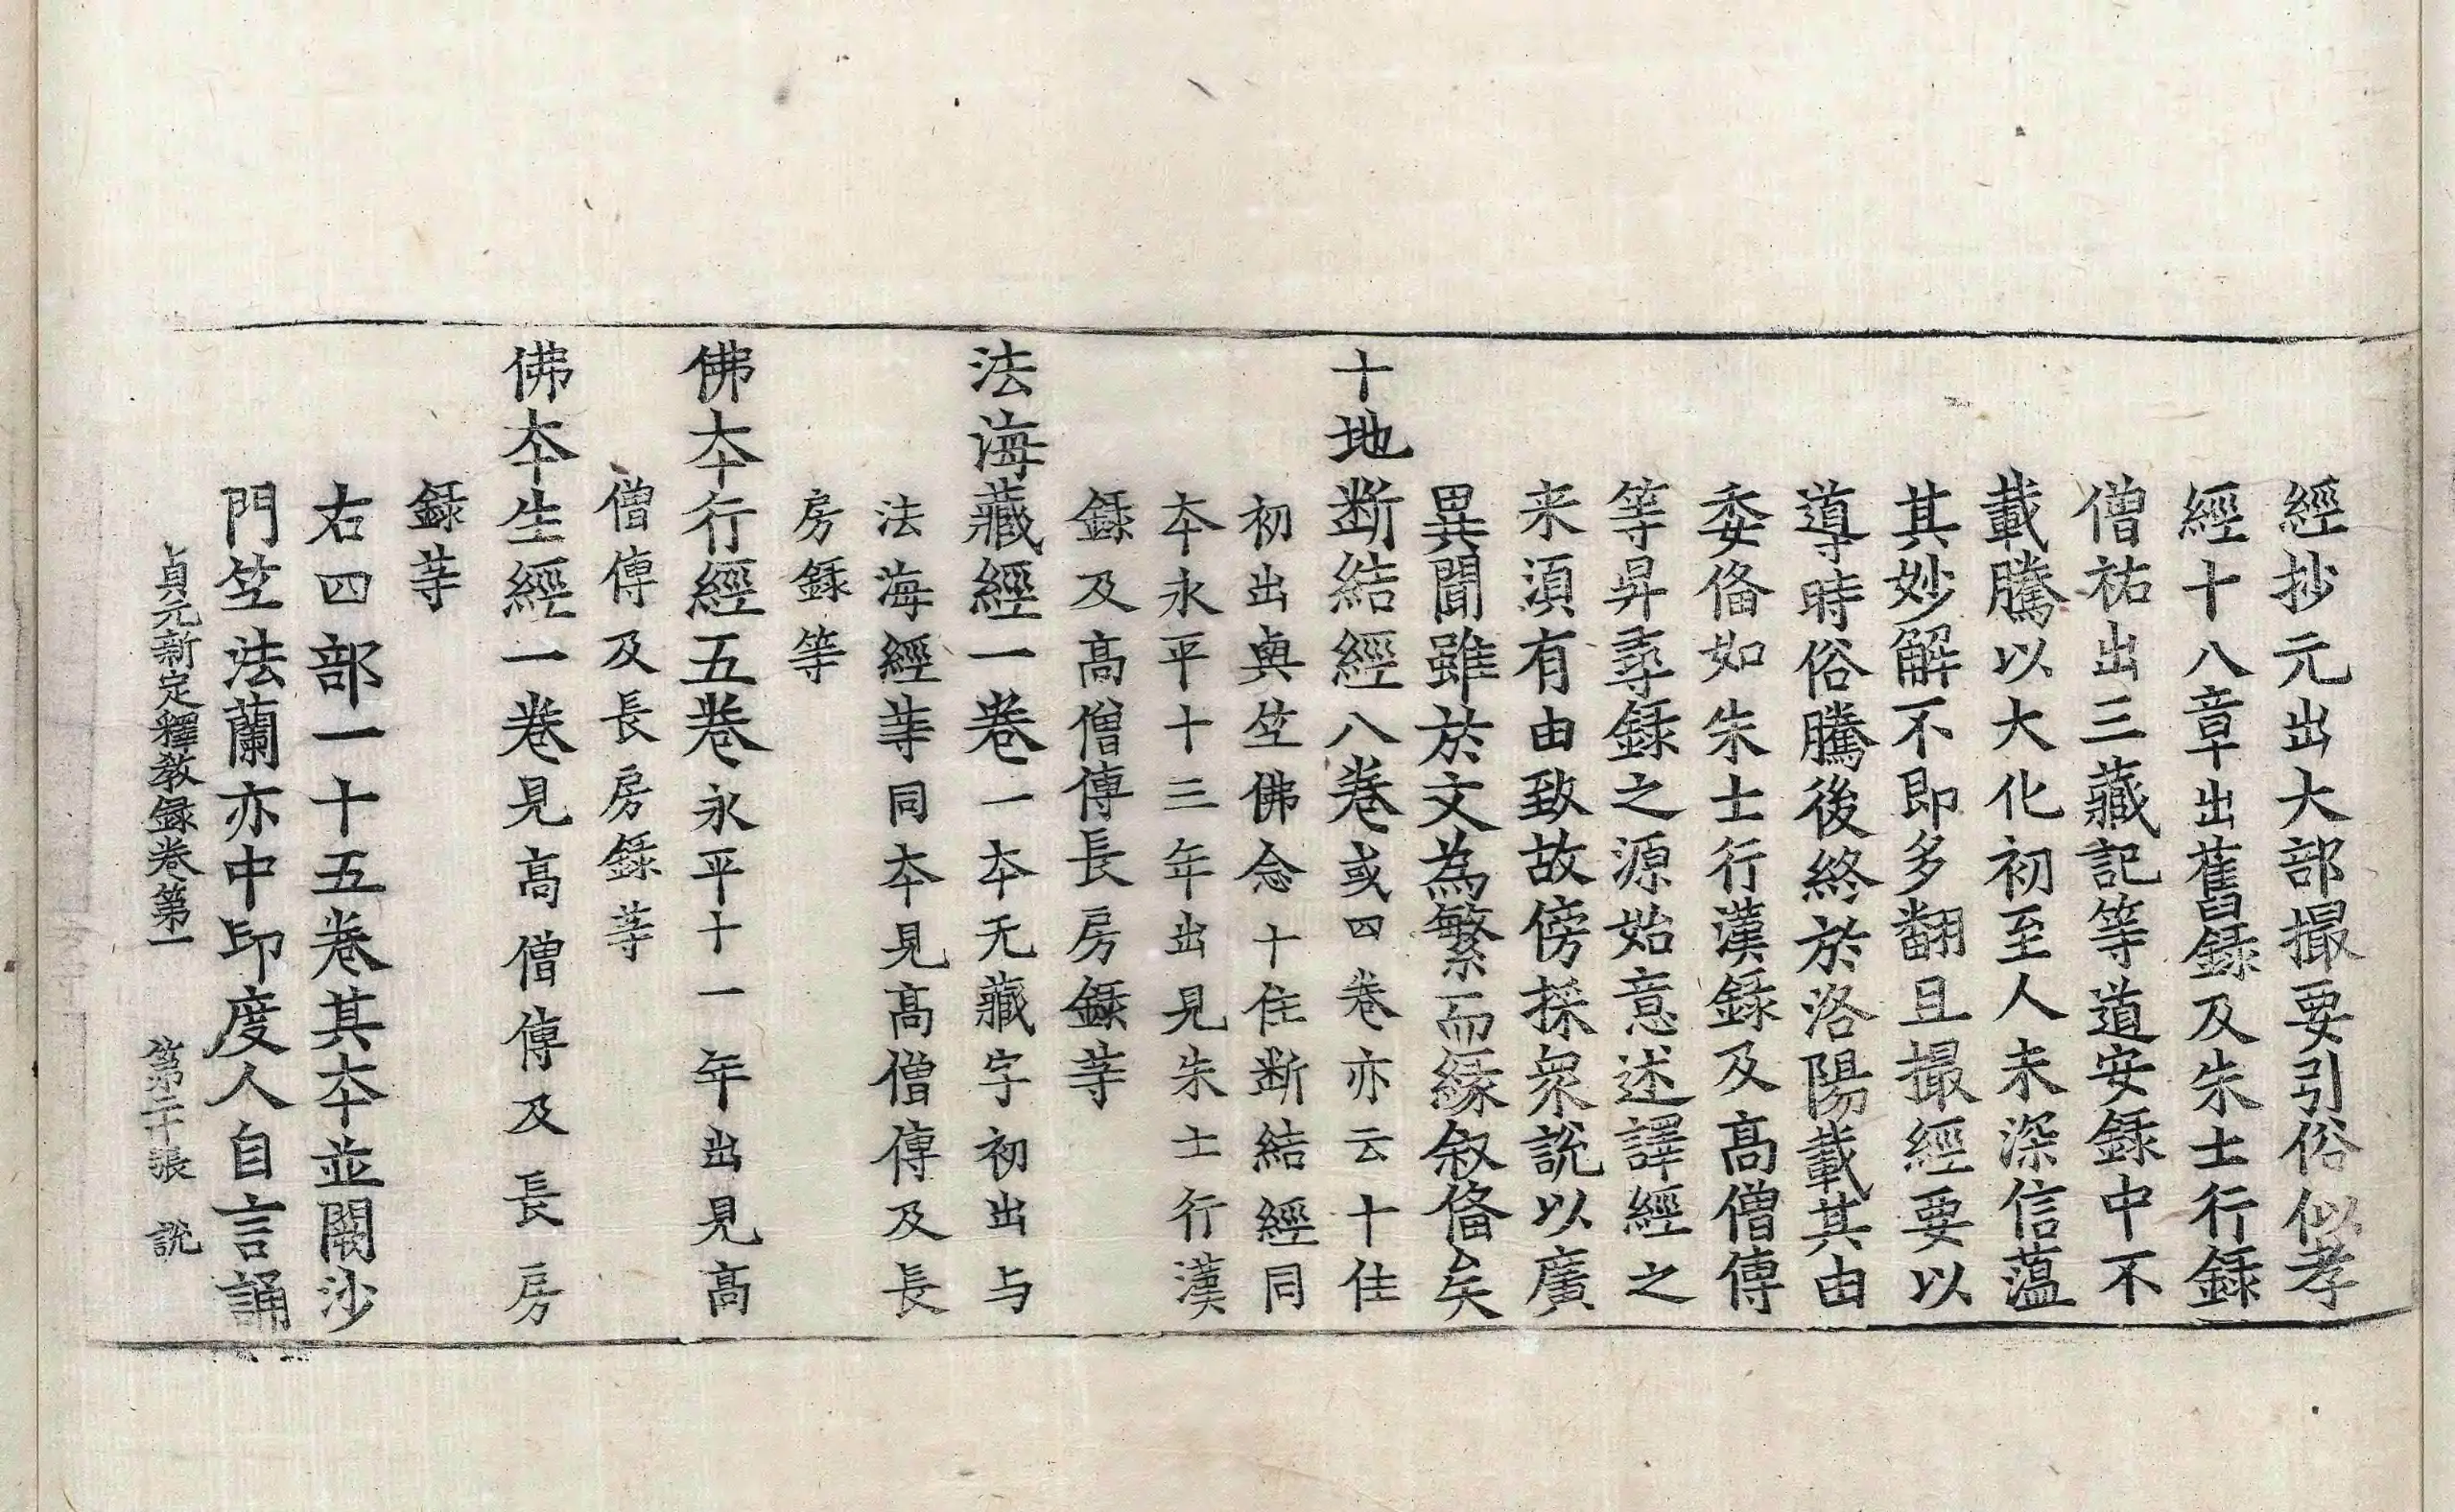 經抄元出大部撮要引俗似孝
經十八章出舊録及朱士行録
僧祐出三藏記等道安録中不
載騰以大化初至人未深信藴
其妙解不即多翻且撮經要以
導時俗騰後終於洛陽載其由
委俻如朱士行漢録及髙僧傳
等昇尋録之源始意述譯經之
来湏有由致故傍採衆說以廣
異聞雖於文為繁而緣叙俻矣
十地断結經八卷或四卷亦云十住
初出與竺佛念十住断結經同
本永平十三年出見朱士行漢
録及髙僧傳長房録等
法海藏經一卷一本无藏字初出与
法海經等同本見髙僧傳及長
房録等
佛本行經五卷永平十一年出見髙
僧傳及長房録等
佛本生經一卷見髙僧傳及長房
録等
右四部一十五卷其本並闕沙
門竺法蘭亦中印度人自言誦
貞元新定釋教録卷第一 第二十張 說